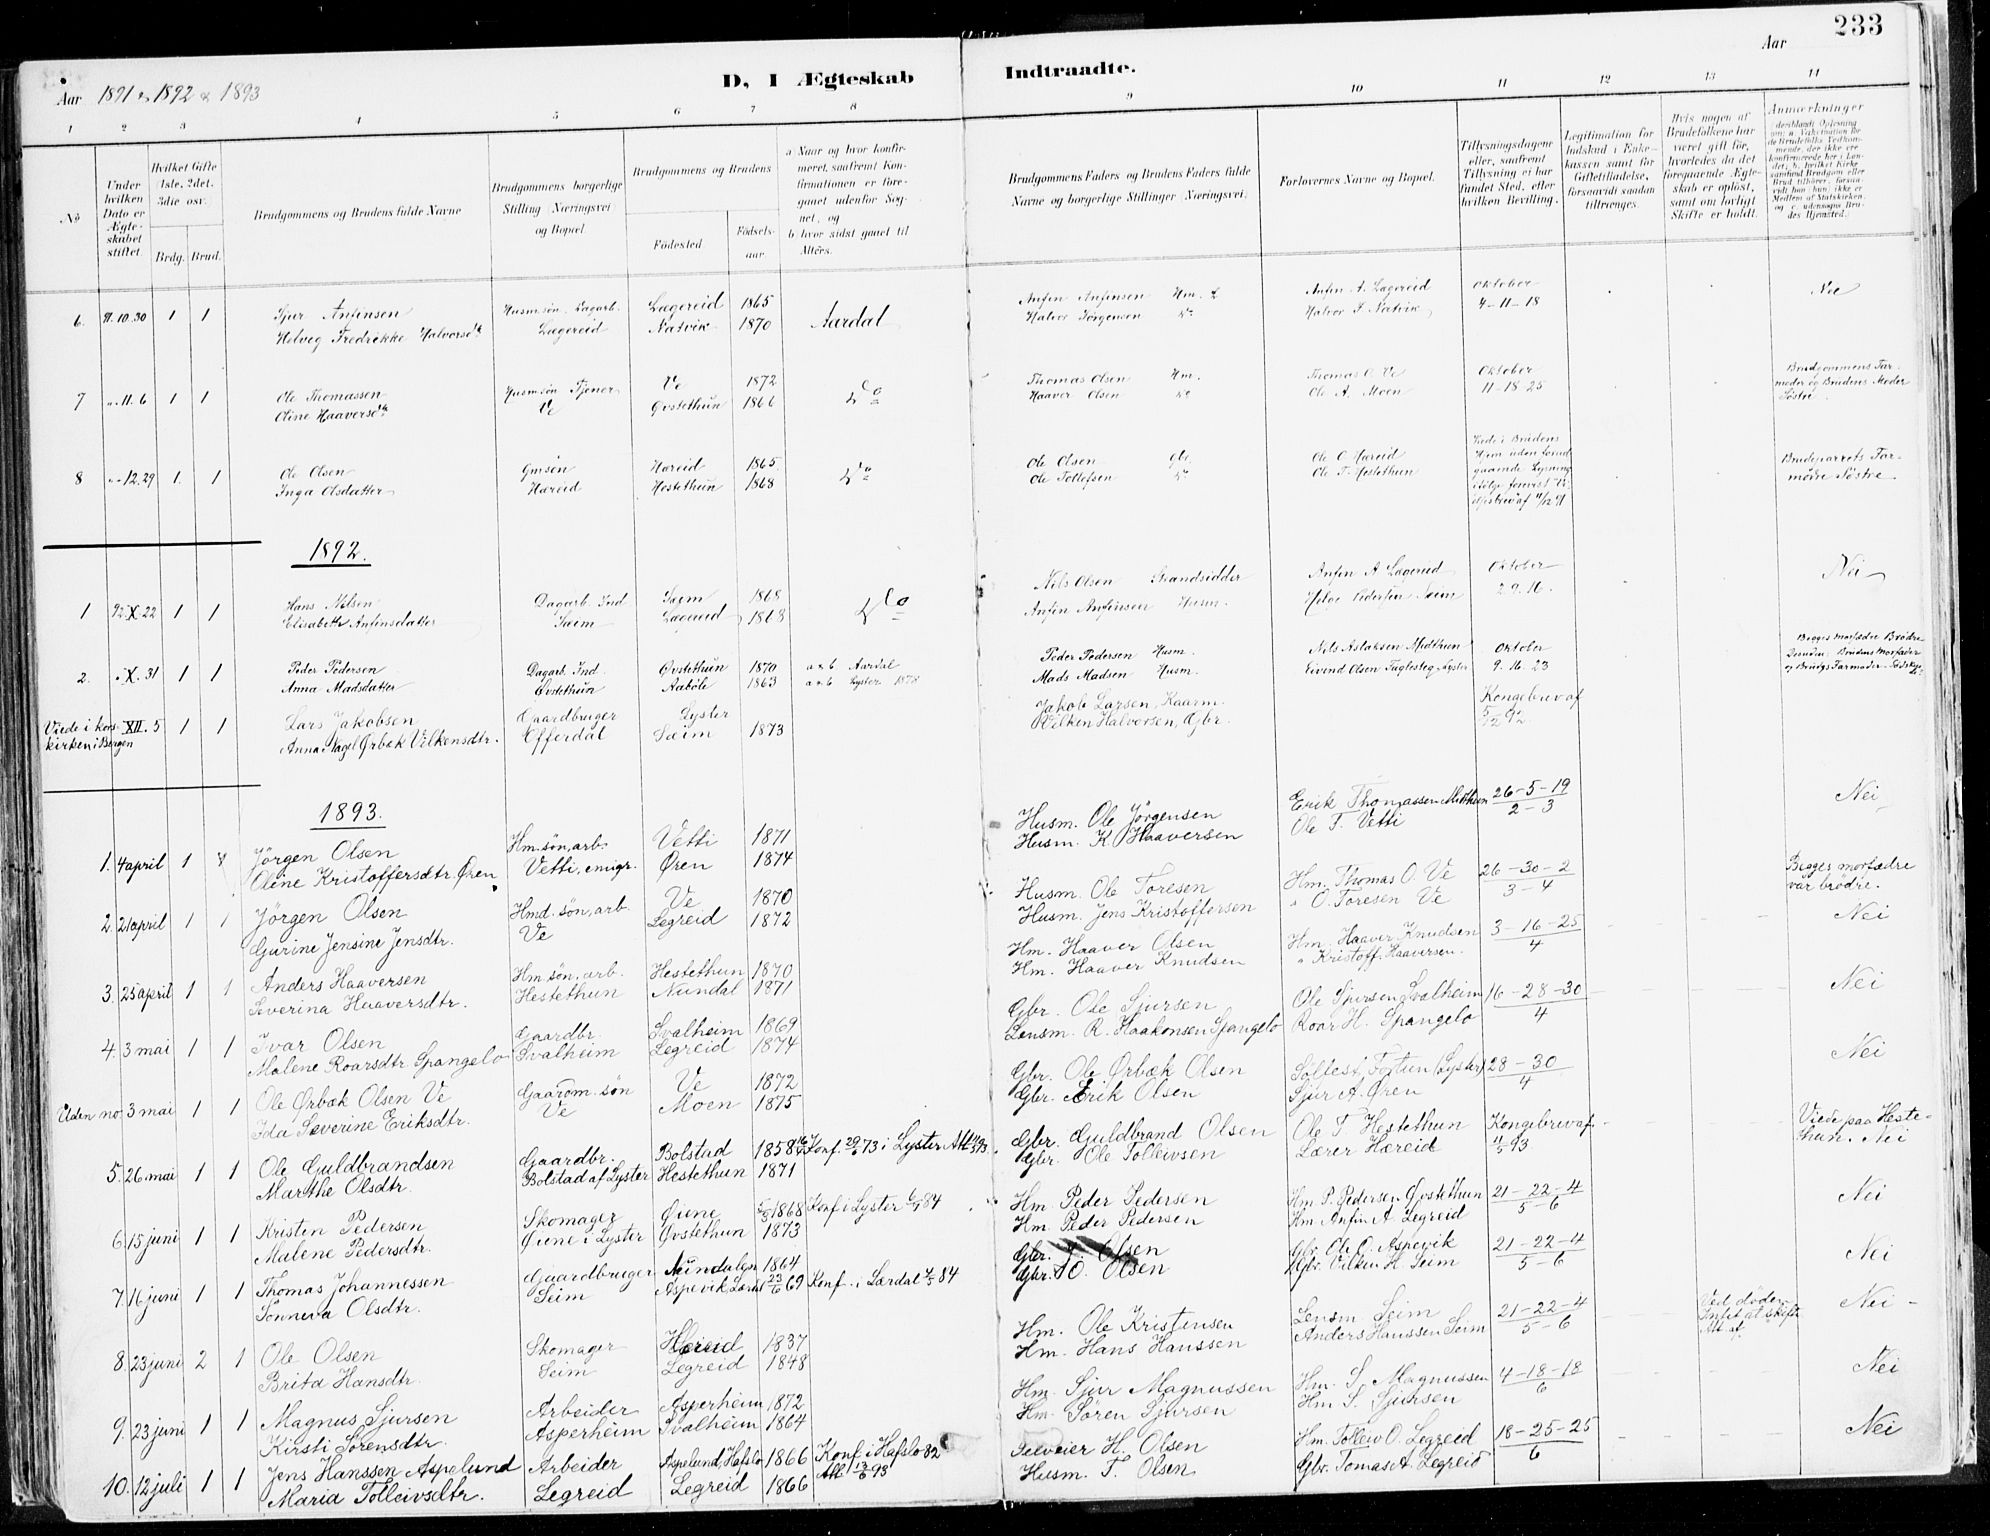 233
Aar 1891 & 1892 & 1893
D, I Ægteskab
Indtraadte.
Aar
1 2 3 4 5 6 7 8 9 10 11 12 13 14
No
Under hvilken Dato er Ægteskabet stiftet
Hvilket Gifte 1ste. 2det. 3die osv.
Brdg. Brud.
Brudgommens og Brudens fulde Navne
Brudgommens borgerlige Stilling (Næringsvei) og Bopæl.
Brudgommens og Brudens
Fødested
Fødselsaar.
a Naar og hvor konfirmeret, saafremt Konfirmationen er foregaaet udenfor Sognet, og
b hvor sidst gaaet til Alters.
Brudgommens Faders og Brudens Faders fulde Navne og borgerlige Stillinger (Næringsvei).
Forlovernes Navne og Bopæl.
Tillysningsdagene eller, saafremt Tillysning ei har fundet Sted, efter hvilken Bevilling.
Legitimation for Indskud i Enkekassen samt for Giftetilladelse, forsaavidt saadan tiltrænges.
Hvis nogen af Brudefolkene har været gift før, hvorledes da det foregaaende Ægteskab er opløst, samt om lovligt Skifte er holdt.
Anmærkninger
6. 91.10.30 1 1 Sjur Anfinsen Husm.søn. Dagarb. Lægereid 1865 Aardal Anfin Anfinsen Hm. Anfin A. Lægereid Oktober Nei
Helveg Fredrikke Halvorsdtr Lægereid Natvik 1870 Halvor Jørgensen Do Halvor J. Natvik 4-11-18
7 " 11.6 1 1 Ole Thomassen Husm.søn Tjener Ve 1872 Do Thomas Olsen Hm. Thomas O. Ve Oktober Brudgommens Farmoder og Brudens Moder Søstre
Oline Haaversdtr Ve Øvstethun 1866 Haaver Olsen Do Ole A. Moen 11-18-25
8 " 12.29 1. 1 Ole Olsen Gmsøn Hæreid 1865 Do Ole Olsen Gbr. Ole O. Hæreid Brudeparrets Farmødre Søstre
Inga Olsdatter Hæreid Hestethun 1868 Ole Tollefsen Do Ole T. Hestethun
1892.
1 92 X 22 1 1 Hans Nilsen Dagarb. Ind Sæim 1868 Do Nils Olsen Strandsidder Anfin A Lægereid Oktober Nei
Elisabeth Anfinsdatter Sæim Lægereid 1868 Anfin Anfinsen Husm. Helge Pedersen Seim 2.9.16.
2. " X. 31 1 1 Peder Pedersen Dagarb. Ind. Øvstethun 1870 a & b Aardal Peder Pedersen Husm. Nils Aslaksen Midthun Oktober
Anna Madsdatter Øvstethun Aabøle 1863 a & b Lyster 1878 Mads Madsen Husm. Eivind Olsen Fuglesteg Lyster 9. 16. 23
Viede i kors- XII. 5 1 1 Lars Jakobsen Gaardbruger Lyster Jakob Larsen, Kaarm. Kongebrev af
kirken i Bergen Anna Nagel Ørbæk Vilkensdtr. Efferdal Sæim 1873 Vilken Halvorsen, Gbr. 5/12 92.
1893.
1. 4 april 1 1 Jörgen Olsen Hm.søn, arb. Vetti 1871 Husm. Ole Jörgensen Erik Thomassen Midthun 26-5-19 Nei
Oline Kristoffersdtr. Øren Vetti, emigr. Øren 1874 Husm. K. Haaversen Ole T. Vetti 2-3
2. 21 april 1 1 Jörgen Olsen Hmd. søn, arb. Ve 1870 Husm. Ole Toresen Hm. Thomas O. Ve 26-30-2 Begges morfædre
Gjurine Jensine Jensdtr. Ve Legreid 1872 Husm. Jens Kristoffersen " O. Toresen Ve 3-4 var brødre.
3. 25 april 1 1 Anders Haaversen Hm.søn, arb. Hestethun 1870 Hm. Haaver Olsen Hm. Haaver Knudsen 3-16-25 Nei
Severina Haaversdtr. Hestethun Nundal 1871 Hm. Haaver Knudsen " Kristoff. Haaversen. 4
4. 3 mai 1 1 Ivar Olsen Gaardbr. Svalheim 1869 Gbr. Ole Sjursen Ole Sjursen Svalheim 16-28-30 Nei
Malene Roarsdtr Spangelo Svalheim Legreid 1874 Lensm. R. Haakonsen Spangelo Roar H. Spangelo 4
Uden no. 3 mai 1 1 Ole Ørbæk Olsen Ve Gaardm. søn Ve 1872 Gbr. Ole Ørbæk Olsen Solfest Fortun (Lyster) 28-30 Nei
Ida Severine Eriksdtr. Ve Moen 1875 Gbr. Erik Olsen Sjur A. Øren 4
5. 26 mai 1 1 Ole Guldbrandsen Gaardbr. Bolstad 1858 Konf. 29/6 73 i Lyster Gbr. Guldbrand Olsen Ole T. Hestethun Kongebrev af Viede paa Heste-
Marthe Olsdtr. Bolstad af Lyster Hestethun 1871 Gbr. Ole Tolleivsen Lærer Hæreid 11/5 93. thun. Nei
6. 15 juni 1 1 Kristen Pedersen Skomager Øiene 1868 Konf i Lyster 84 Hm. Peder Pedersen Hm P. Pedersen Øvstethun 21-22-4 Nei
Malene Pedersdtr. Øiene i Lyster Øvstethun 1873 Hm. Peder Pedersen Hm. Anfin A. Legreid 5-6
7. 16 juni 1 1 Thomas Johannessen Gaardbruger Nundalen 1864 Gbr. J. Olsen Gbr. Ole O. Aspevik 21-22-4 Nei
Sönneva Olsdtr. Seim Aspevik 23/6 69 Konf. i Lærdal 84 Gbr. O. Olsen Gbr. Vilken H. Seim 5-6
8. 23 juni 2 1 Ole Olsen Skomager Hæreid 1837 Hm. Ole Kristensen Lensm. Seim 21-22-4 Nei
Brita Hansdtr. Seim Legreid 1848 Hm. Hans Hanssen Anders Hanssen Seim 5-6
9. 23 juni 1 1 Magnus Sjursen Arbeider Asperheim 1872 Hm. Sjur Magnussen Hm. S. Magnussen 4-18-18 Nei
Kirsti Sørensdtr. Asperheim Svalheim 1864 Hm. Søren Sjursen Hm S. Sjursen 6
10. 12 juli 1 1 Jens Hanssen Aspelund Arbeider Aspelund, Hafslo 1866 Konf. i Hafslo 82 H. Olsen Hm. Tolleiv O. Legreid 18-25-25 Nei
Maria Tolleivsdtr. Legreid Legreid 1866 Alt. 13/6 93 Husm. T. Olsen Gbr. Tomas A. Legreid 6